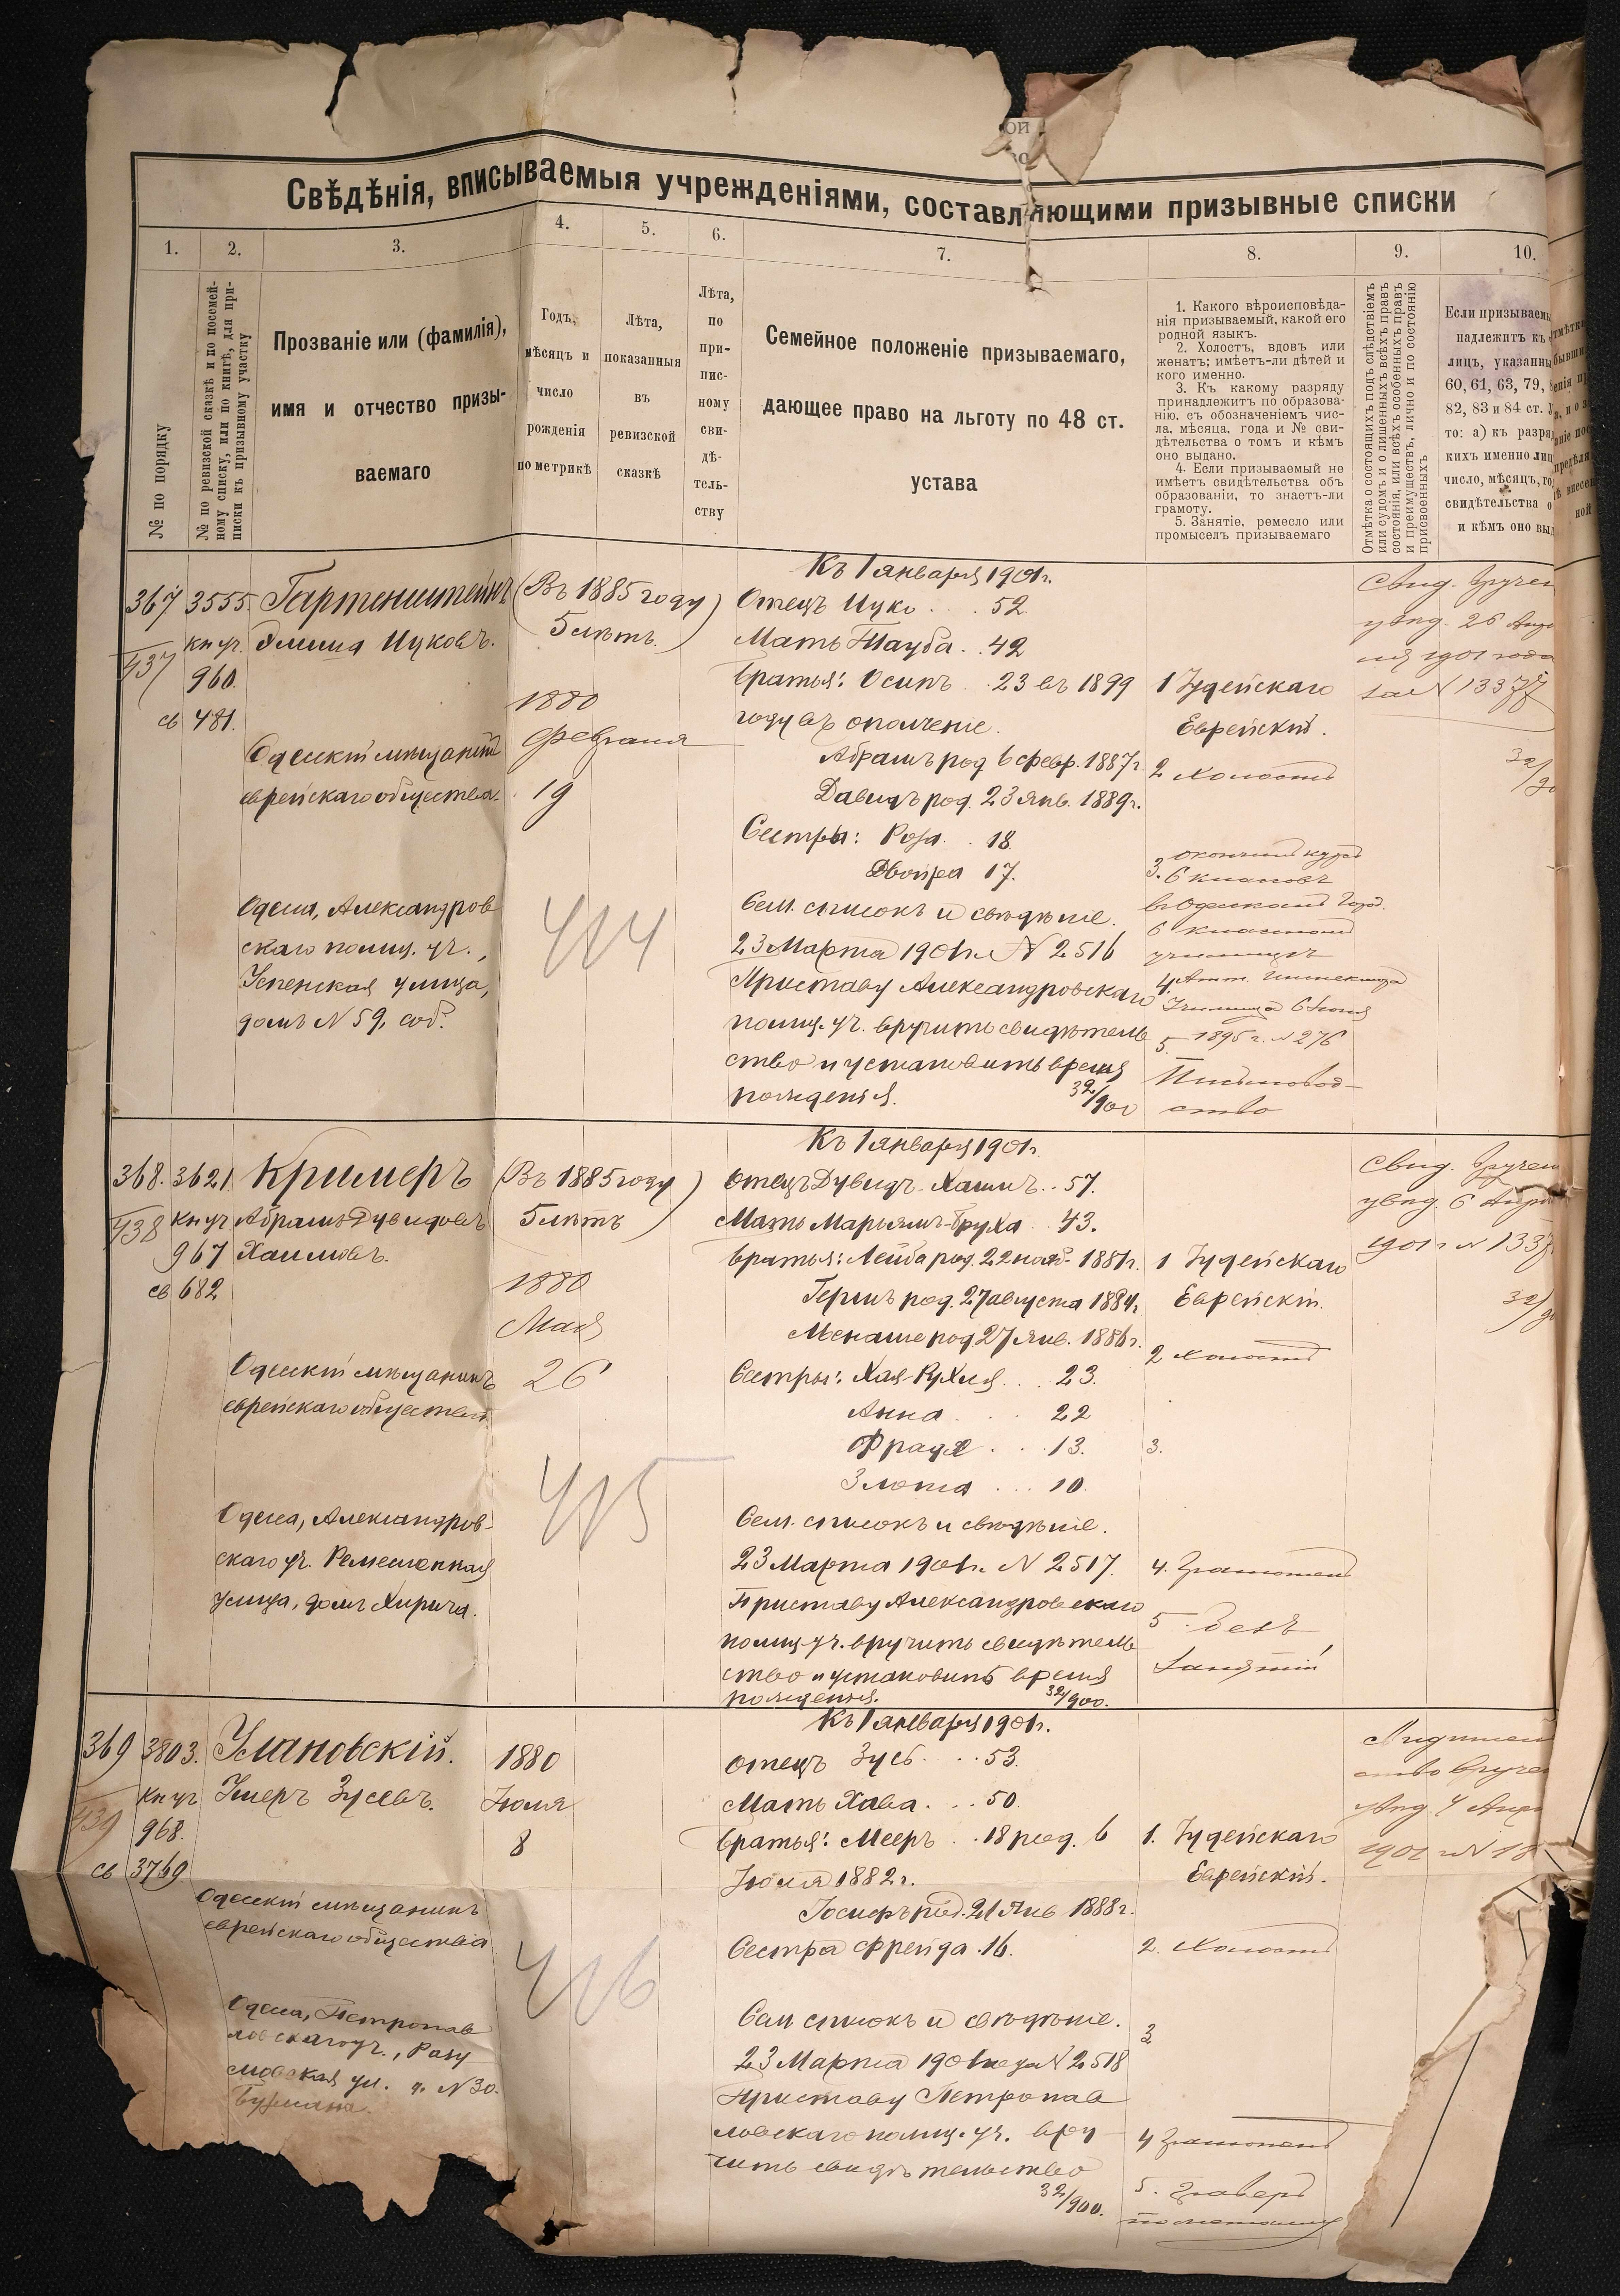 ой
Свѣдѣнія, вписываемыя учрежденіями, составляющими призывные списки
1.
2.
3.
4.
5.
6.
7.
8.
9.
10.
№ по порядку
№ по ревизской сказкѣ и по посемей-
ному списку, или по книгѣ, для при-
писки къ призывному участку
Прозваніе или (фамилія),
имя и отчество призы-
ваемаго
Годъ,
мѣсяцъ и
число
рожденія
по метрикѣ
Лѣта,
показанныя
въ
ревизской
сказкѣ
Лѣта,
по
при-
пис-
ному
сви-
дѣ-
тель-
ству
Семейное положеніе призываемаго,
дающее право на льготу по 48 ст.
устава
1. Какого вѣроисповѣда-
нія призываемый, какой его
родной языкъ.
2. Холостъ, вдовъ или
женатъ; имѣетъ-ли дѣтей и
кого именно.
3. Къ какому разряду
принадлежитъ по образова-
нію, съ обозначеніемъ чис-
ла, мѣсяца, года и № сви-
дѣтельства о томъ и кѣмъ
оно выдано.
4. Если призываемый не
имѣетъ свидѣтельства объ
образованіи, то знаетъ-ли
грамоту.
5. Занятіе, ремесло или
промыселъ призываемаго
Отмѣтка о состоящихъ подъ слѣдствіемъ
или судомъ и о лишенныхъ всѣхъ правъ
состоянія, или всѣхъ особенныхъ правъ
и преимуществъ, лично и по состоянію
присвоенныхъ
Если призываем
надлежитъ къ
лицъ, указанны
60, 61, 63, 79,
82, 83 и 84 ст.
то: а) къ разр
кихъ именно лиц
число, мѣсяцъ, го
свидѣтельства о
и кѣмъ оно выд
367
437
3555
кн уч.
960.
св 481.
Гартенштейнъ
Эмиша Ицковъ.
Одесскій мѣщанинъ
еврейскаго общества.
Одесса, Александров
скаго полиц. уч.,
Успенская улица,
домъ N 59, соб.
(Въ 1885 году)
5 лѣтъ.
1880
Февраля
19
414
Къ 1 января 1901 г.
Отецъ Ицко . . . 52
Мать Тауба . . 42
Братья: Осипъ . . 23 въ 1899
году въ ополченіе.
Абрамъ род 6 февр. 1887 г.
Давидъ род. 23 Янв. 1889 г.
Сестры: Роза . . 18.
Двойра 17.
Сем. списокъ и свѣдѣніе.
23 Марта 1901 г. N 2516
Приставу Александровскаго
полиц. уч. вручить свидѣтель
ство и установить время
рожденія.
32/900
1 Іудейскаго
Еврейскій.
2 холостъ
3. окончилъ курсъ
6 классовъ
въ Одесскомъ Город.
6 классномъ
училищѣ
4. Атт. Инспектора
Училища 6 Іюня
1895 г. N 276
5.
Письмовод-
ство
Свид. вручен
увѣд. 26 Апрѣ
ля 1901 года
за N 13377
32/90
368.
438
3621
кн уч
967
св 682
Кримеръ
Абрамъ Дувидовъ
Хаимовъ.
Одесскій мѣщанинъ
еврейскаго общества.
Одесса, Александров-
скаго уч. Ремесленная
улица, домъ Хирича.
(Въ 1885 году)
5 лѣтъ
1880
Мая
26
415
Къ 1 января 1901 г.
Отецъ Дувидъ-Хаимъ . . 57.
Мать Марьямъ-Бруха . . 43.
Братья: Лейба род. 22 нояб. 1881 г.
Гершъ род. 27 августа 1884 г.
Менаше род 27 Янв. 1886 г.
Сестры: Хая-Рухля . . . 23.
Анна . . . 22
Фрадя . . . 13.
Злота . . . 10.
Сем. списокъ и свѣдѣніе.
23 Марта 1901 г. N 2517.
Приставу Александровскаго
полиц. уч. вручить свидѣтель
ство и установить время
рожденія.
32/900.
1 Іудейскаго
Еврейскій.
2 холостъ
3.
4. Грамотенъ
5. Безъ
занятій
Свид. вручен
увѣд. 6 Апрѣ
1901 г N 1337
32/90
369
439
3803.
кн уч
968.
св 3769
Улановскій.
Умеръ Зусевъ.
Одесскій мѣщанинъ
еврейскаго общества
Одесса, Петропав
ловскаго уч., Разу
мовская ул. д. N 30.
1880
Іюля
8
416
Къ 1 января 1901 г.
Отецъ Зусь . . . 53.
Мать Хава . . . 50.
Братья: Мееръ . . 18 род. 6
Іюля 1882 г.
Іосифъ род. 21 Янв 1888 г.
Сестра Фрейда . 16.
Сем списокъ и свѣдѣніе.
23 Марта 1901 г за N 2518
Приставу Петропав
ловскаго полиц. уч. вру
чить свидѣтельство
32/900.
1. Іудейскаго
Еврейскій.
2. Холостъ
3
4 Грамотенъ
5. Граверъ
по металлу
ство вруче
увѣд. 4 Апрѣ
1901 г N 13